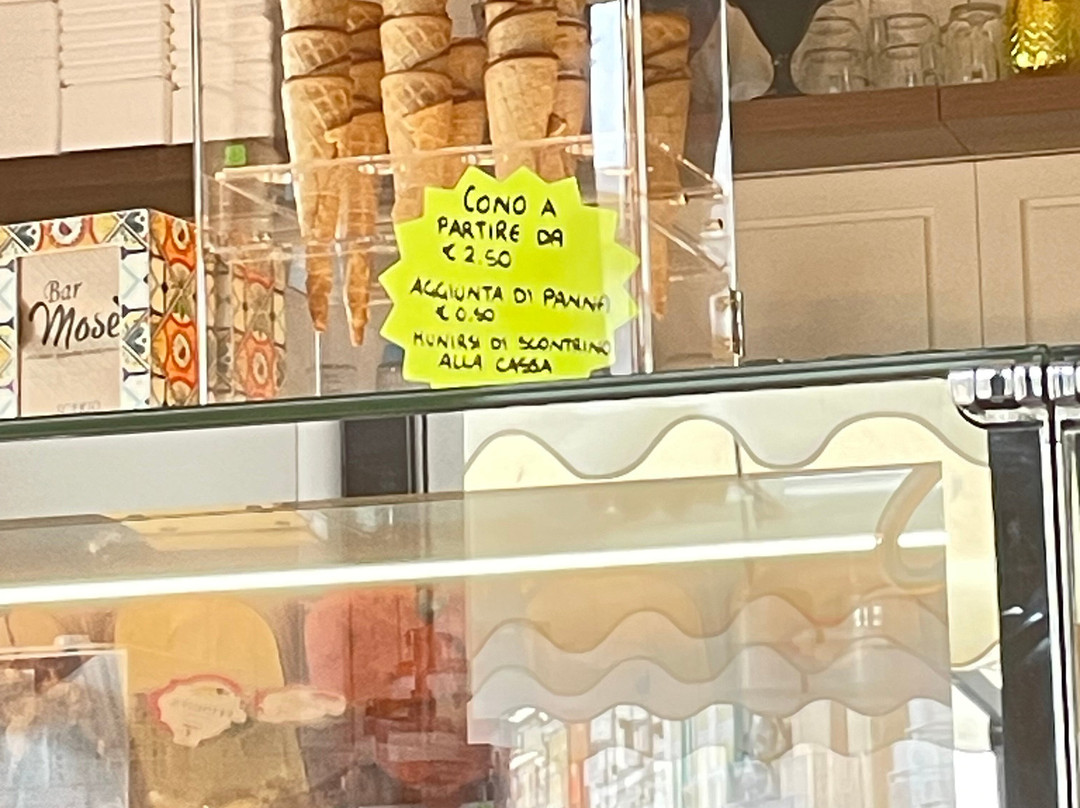 CONO A
PARTIRE DA
€ 2.50
AGGIUNTA DI PANNA
€ 0.50
MUNIRSI DI SCONTRINO
ALLA CASSA
Bar
Mosè